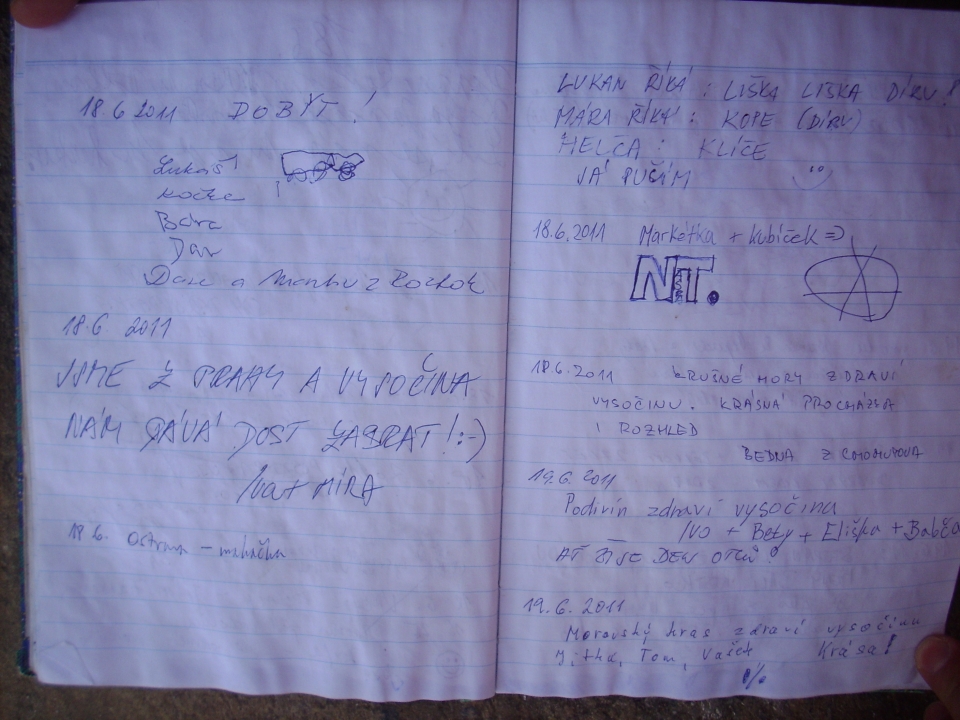 18.6 2011 DOBÝT!
Lukáš
Kočka
Dan
18.6. 2011
JSME Z PRAHY A VYSOČINA
NÁM DÁVÁ DOST ZABRAT! :-)
Iva + MÍRA
18.6. Ostrava -
LUKAN ŘÍKÁ: LIŠKA LIŠKA DÍRU!
MÁRA ŘÍKÁ: KOPE (DÍRU)
HELČA: KLÍČE
JÁ PUČÍM
18.6.2011 Markétka + Kubíček =)
NIT.
18.6.2011 KRUŠNÉ HORY ZDRAVÍ
VYSOČINU. KRÁSNÁ PROCHÁZKA
I ROZHLED
BEDNA Z CHOMUTOVA
19.6. 2011
Podivín zdraví vysočinu
IVO + Beky + Eliška + Babča
AŤ ŽIJE DEN OTCŮ!
19.6.2011
Moravský kras zdraví vysočinu
Jitka, Tom, Vašek Krása!